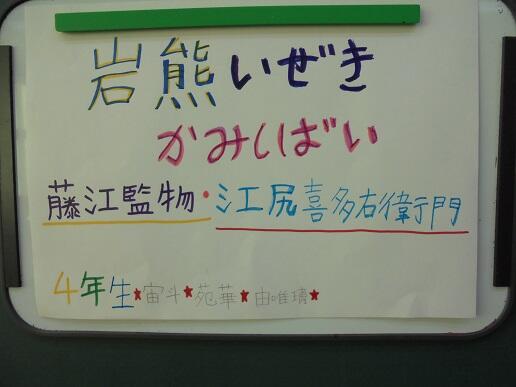 岩熊いぜき
かみしばい
藤江監物・江尻喜多右衛門
4年生★宙斗★苑華★由唯璃★